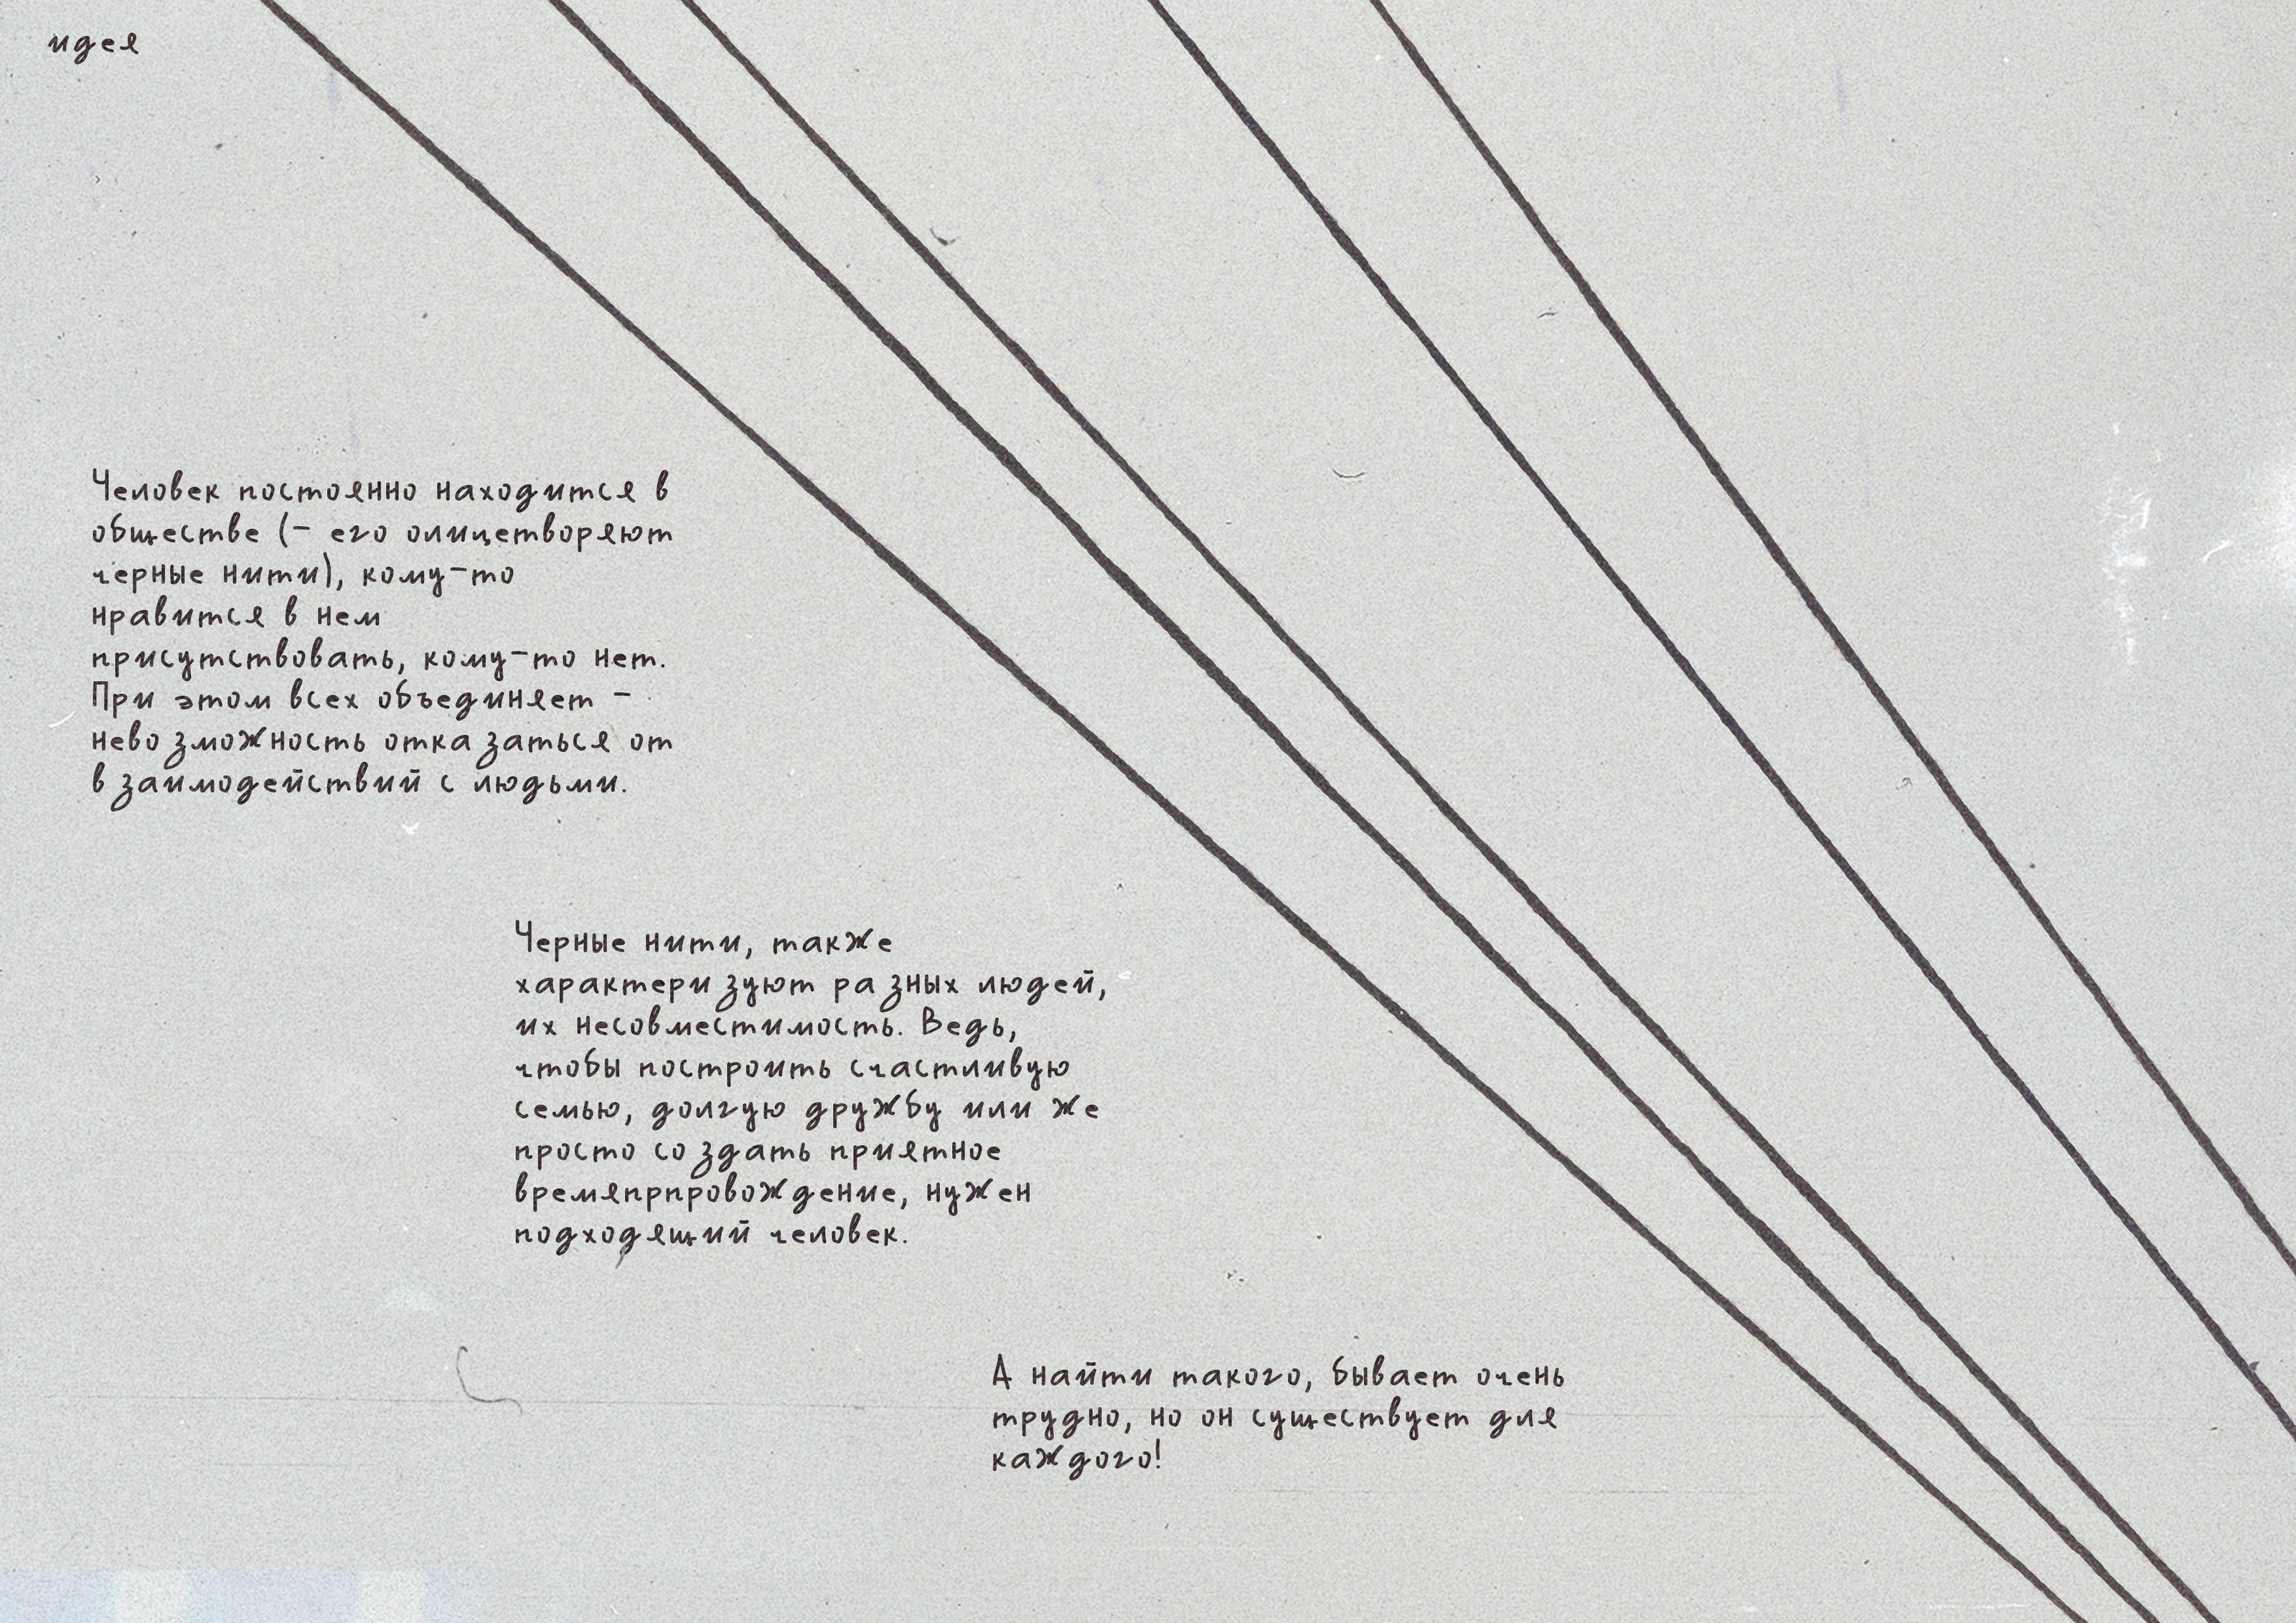 идея
Человек постоянно находится в
обществе (- его олицетворяют
черные нити), кому-то
нравится в нем
присутствовать, кому-то нет.
При этом всех объединяет -
невозможность отказаться от
взаимодействий с людьми.
Черные нити, также
характеризуют разных людей,
их несовместимость. Ведь,
чтобы построить счастливую
семью, долгую дружбу или же
просто создать приятное
времяпрпровождение, нужен
подходящий человек.
А найти такого, бывает очень
трудно, но он существует для
каждого!